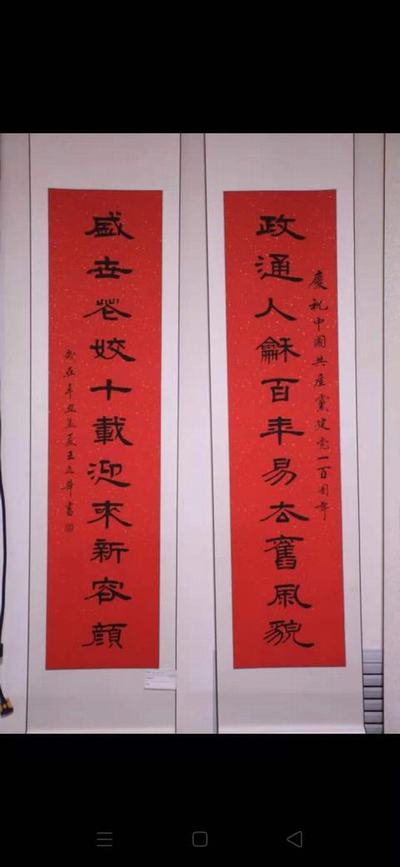 慶祝中國共產黨建党一百周年
政通人龢百年易去舊風貌
盛世花姣十載迎來新容顏
歲在辛丑夏王立華書